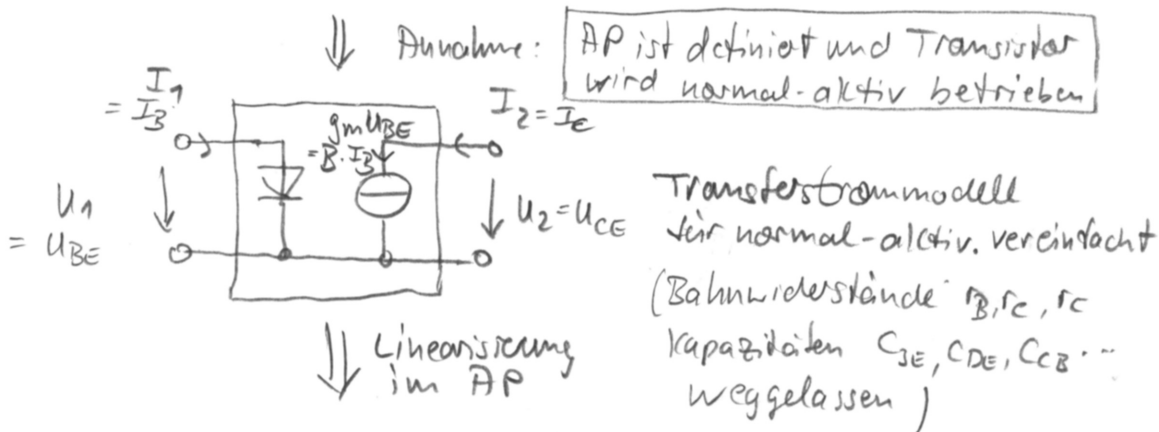 ⇓ Annahme: AP ist definiert und Transistor
wird normal-aktiv betrieben
I1
= IB
I2 = IC
gm UBE
= B · IB
U1
= UBE
U2 = UCE
Transferstrommodell
für normal-aktiv. vereinfacht
(Bahnwiderstände rB, rC, rC
Kapazitäten CJE, CDE, CCB ...
weggelassen)
⇓ Linearisierung
im AP